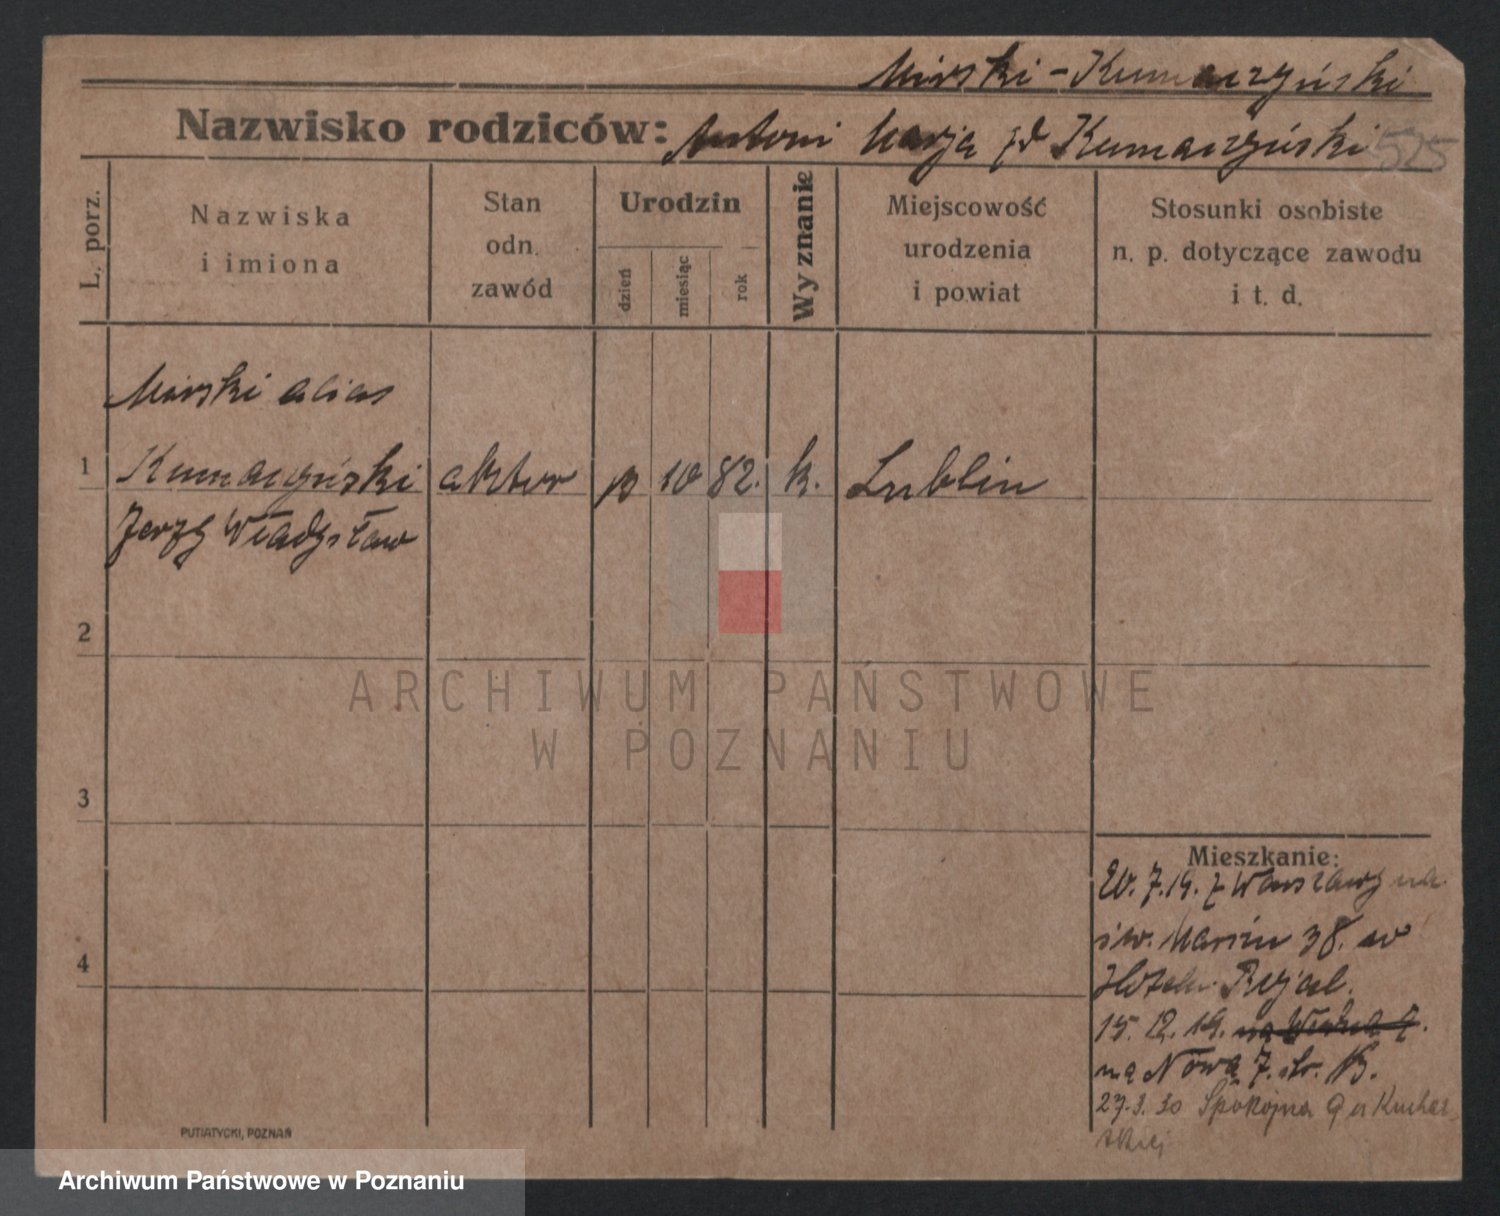 Mirski - Kumaczyński
Nazwisko rodziców: Antoni Marja zd Kumaczyński 525
L. porz.
Nazwiska
i imiona
Stan
odn.
zawód
Urodzin
dzień
miesiąc
rok
Wyznanie
Miejscowość
urodzenia
i powiat
Stosunki osobiste
n. p. dotyczące zawodu
i t. d.
Mirski alias
1 Kumaczyński aktor 10 82. k. Lublin
Jerzy Władysław
2
ARCHIWUM PAŃSTWOWE
W POZNANIU
3
4
Mieszkanie:
20.7.19. z Warszawy na
św. Marcin 38. w
Hotelu Royal.
15.12.19.
na Nowa 7. str. B.
27.3.20 Spokojna u Kuchar
skiej
PUTIATYCKI, POZNAŃ
Archiwum Państwowe w Poznaniu